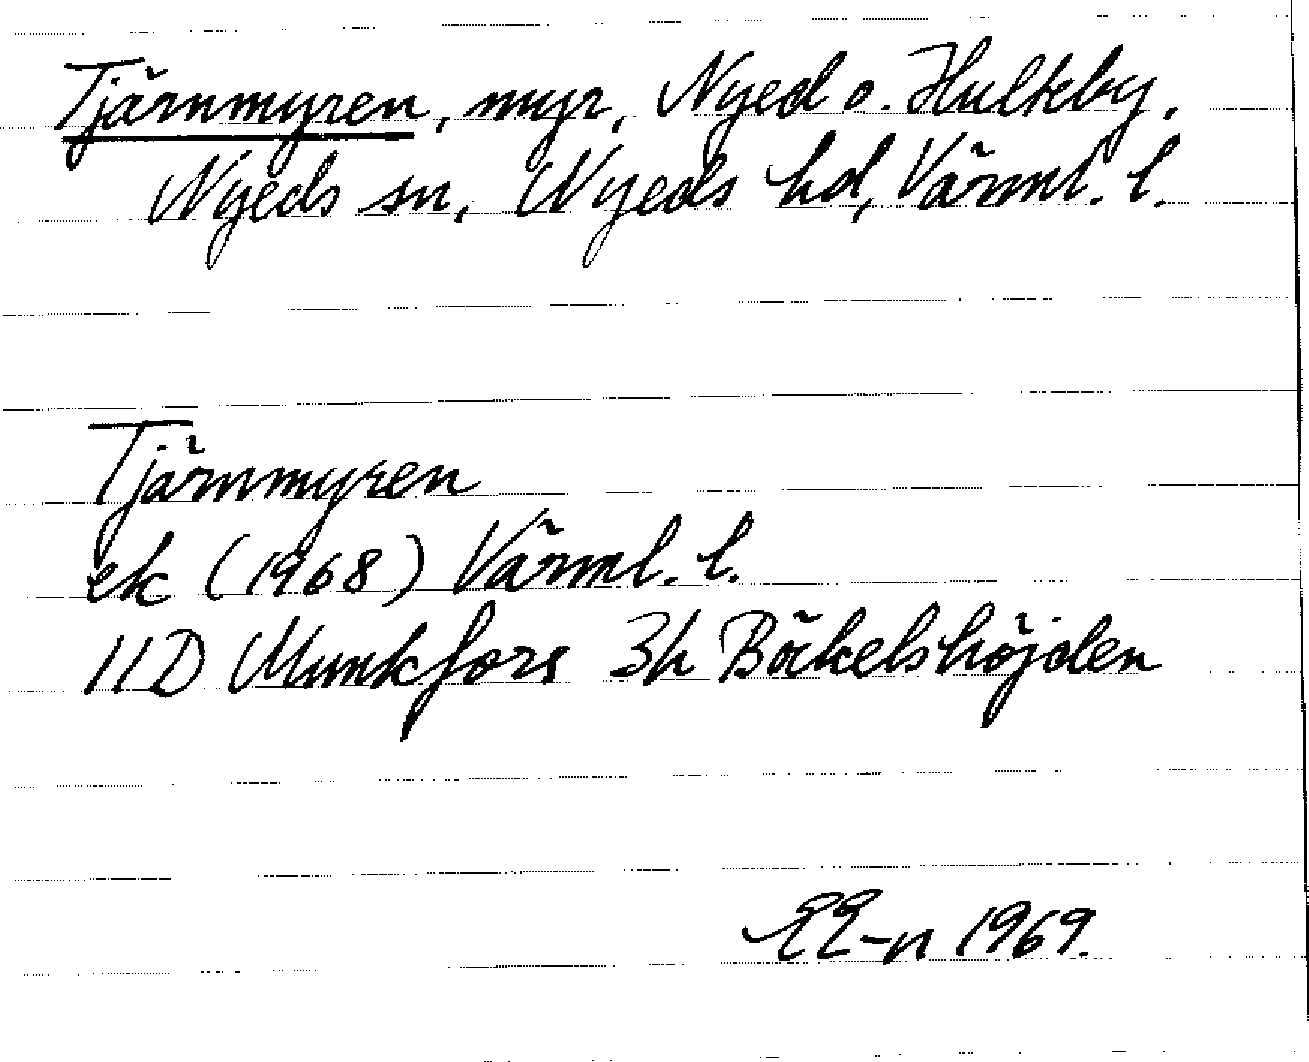 Tjärnmyren, myr, Nyed o. Hultkby,
Nyeds sn, Nyeds hd, Värml. l.
Tjärnmyren
ek (1968) Värml. l.
11D Munkfors 3h Böckelshöjden
EE-n 1969.